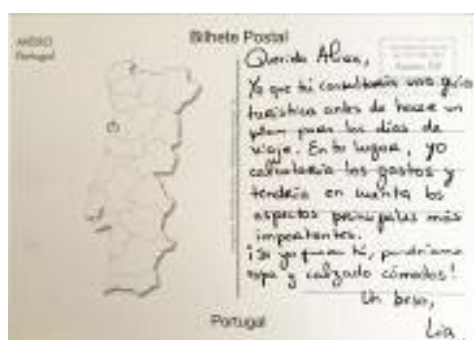 AVEIRO
Portugal
Bilhete Postal
Querida Alian,
Yo que tú consultaría una guía
turística antes de hacer un
plan para los días de
viaje. En tu lugar, yo
calcularía los gastos y
tendría en cuenta los
aspectos principales más
importantes.
¡Si yo fuera tú, pondríame
ropa y calzado cómodos!
Un beso,
Lia
Portugal